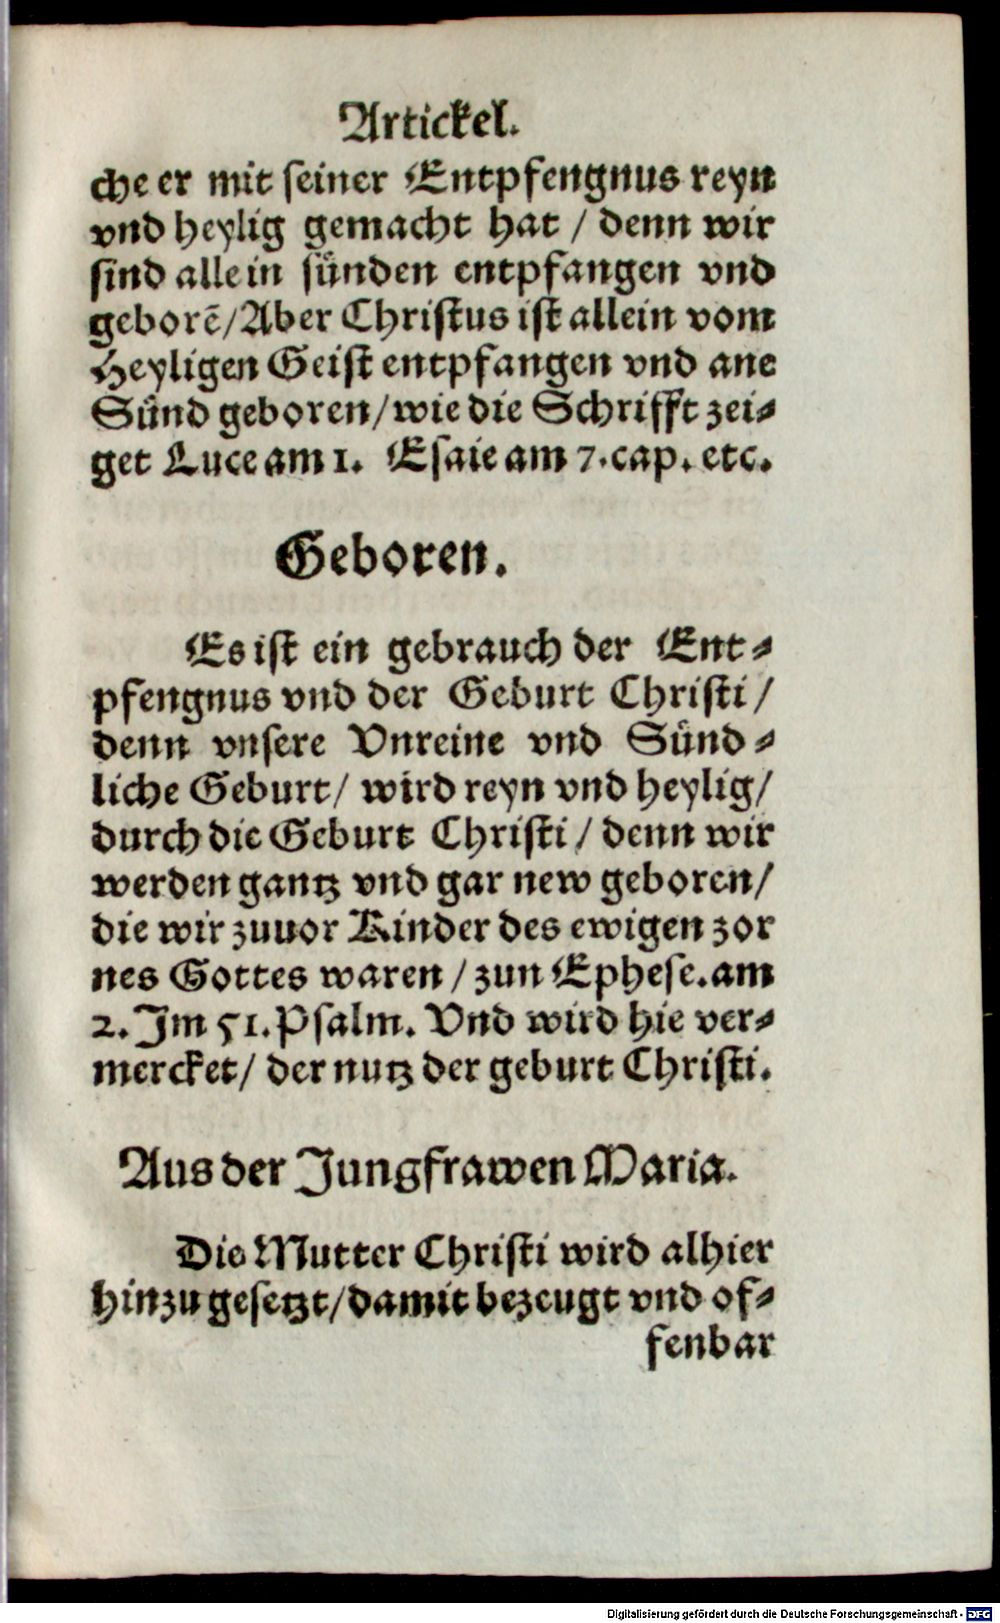 Artickel.
che er mit seiner Entpfengnus reyn
vnd heylig gemacht hat / denn wir
sind alle in sünden entpfangen vnd
geborẽ/Aber Christus ist allein vom
Heyligen Geist entpfangen vnd ane
Sünd geboren/wie die Schrifft zei-
get Luce am 1. Esaie am 7.cap. etc.
Geboren.
Es ist ein gebrauch der Ent-
pfengnus vnd der Geburt Christi/
denn vnsere Vnreine vnd Sünd-
liche Geburt/ wird reyn vnd heylig/
durch die Geburt Christi / denn wir
werden gantz vnd gar new geboren/
die wir zuuor Kinder des ewigen zor
nes Gottes waren / zun Ephese. am
2. Im 51. Psalm. Vnd wird hie ver-
mercket/ der nutz der geburt Christi.
Aus der Jungfrawen Maria.
Die Mutter Christi wird alhier
hinzu gesetzt/damit bezeugt vnd of-
fenbar
Digitalisierung gefördert durch die Deutsche Forschungsgemeinschaft - DFG